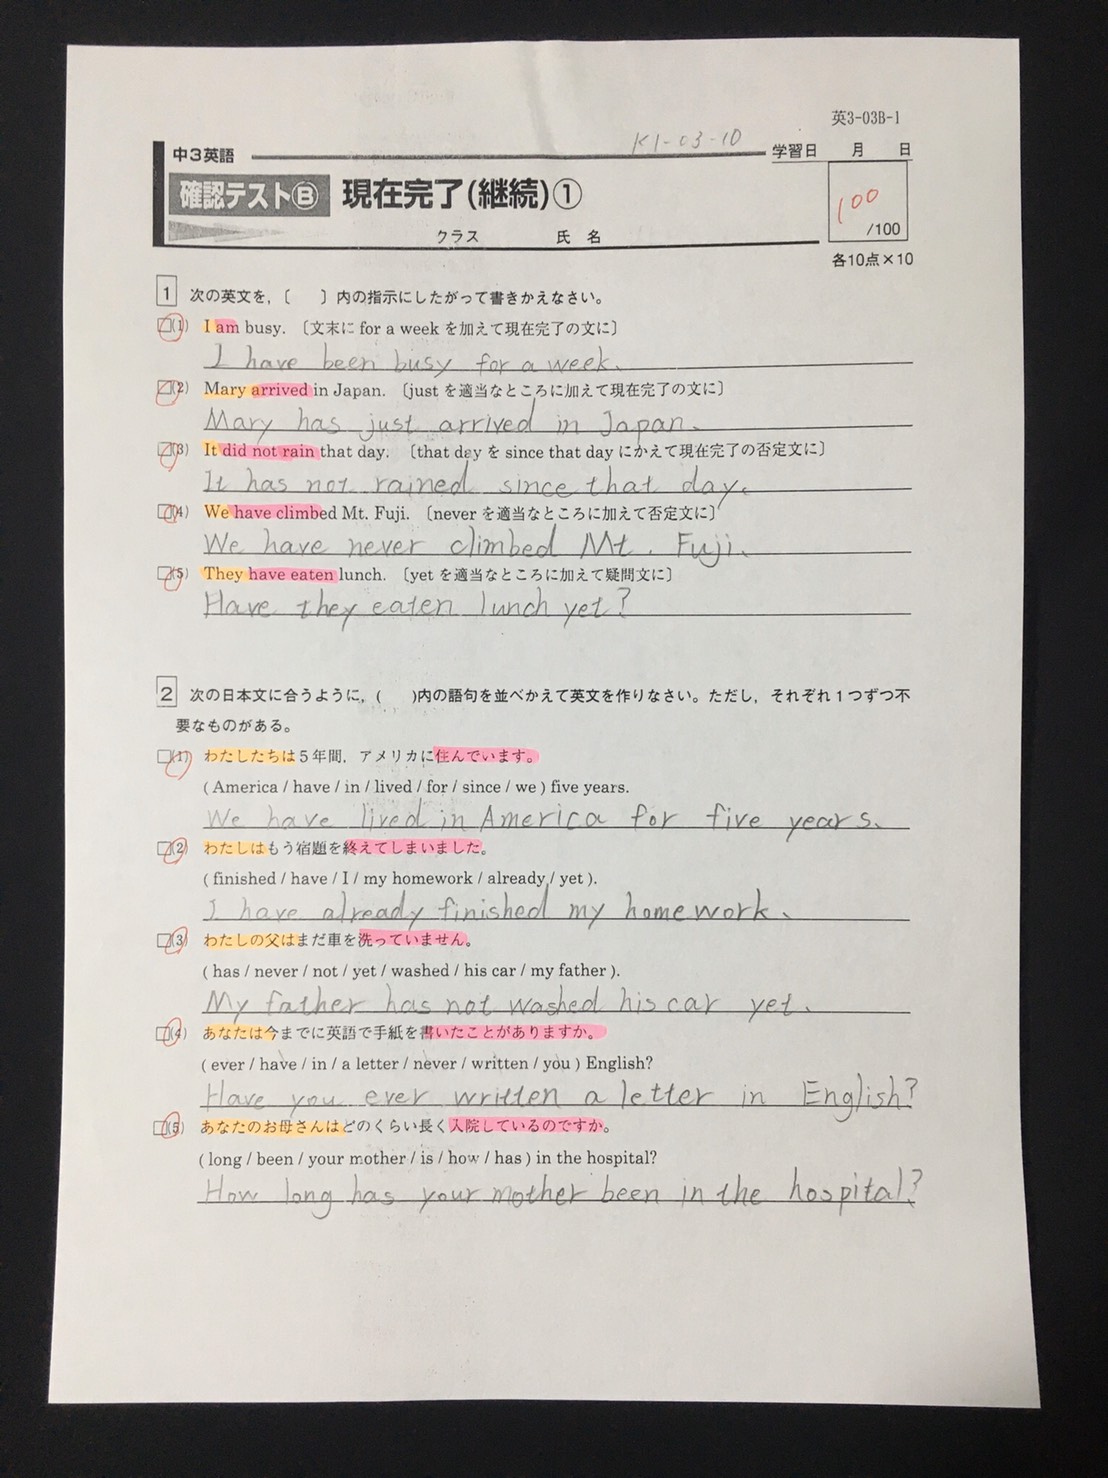 英3-03B-1
K1-03-10
中3英語
学習日 月 日
確認テストⒷ 現在完了(継続)①
100
/100
クラス 氏 名
各10点×10
1 次の英文を,〔 〕内の指示にしたがって書きかえなさい。
□(1) I am busy. 〔文末に for a week を加えて現在完了の文に〕
I have been busy for a week.
□(2) Mary arrived in Japan. 〔just を適当なところに加えて現在完了の文に〕
Mary has just arrived in Japan.
□(3) It did not rain that day. 〔that day を since that day にかえて現在完了の否定文に〕
It has not rained since that day.
□(4) We have climbed Mt. Fuji. 〔never を適当なところに加えて否定文に〕
We have never climbed Mt. Fuji.
□(5) They have eaten lunch. 〔yet を適当なところに加えて疑問文に〕
Have they eaten lunch yet?
2 次の日本文に合うように,( )内の語句を並べかえて英文を作りなさい。ただし,それぞれ1つずつ不
要なものがある。
□(1) わたしたちは5年間,アメリカに住んでいます。
( America / have / in / lived / for / since / we ) five years.
We have lived in America for five years.
□(2) わたしはもう宿題を終えてしまいました。
( finished / have / I / my homework / already / yet ).
I have already finished my homework.
□(3) わたしの父はまだ車を洗っていません。
( has / never / not / yet / washed / his car / my father ).
My father has not washed his car yet.
□(4) あなたは今までに英語で手紙を書いたことがありますか。
( ever / have / in / a letter / never / written / you ) English?
Have you ever written a letter in English?
□(5) あなたのお母さんはどのくらい長く入院しているのですか。
( long / been / your mother / is / how / has ) in the hospital?
How long has your mother been in the hospital?